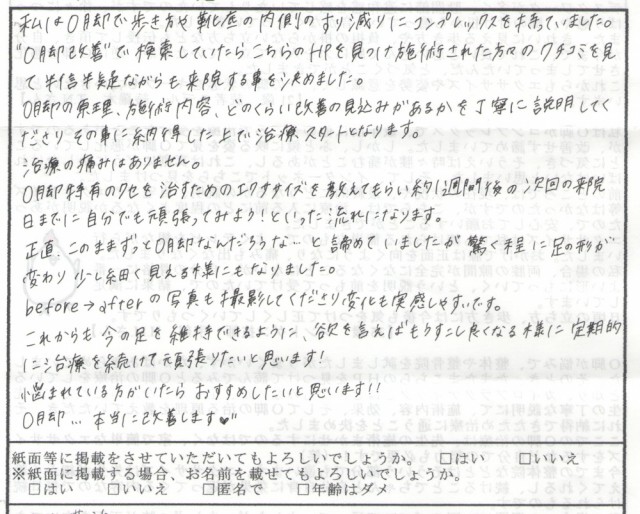 私はO脚で歩き方や靴底の内側のすり減りにコンプレックスを持っていました。
"O脚改善"で検索していたらこちらのHPを見つけ施術された方々のクチコミを見
て半信半疑ながらも来院する事を決めました。
O脚の原理、施術内容、どのくらい改善の見込みがあるかを丁寧に説明してく
ださりその事に納得した上で治療スタートとなります。
治療の痛みはありません。
O脚特有のクセを治すためのエクササイズを教えてもらい約1週間後の次回の来院
日までに自分でも頑張ってみよう！といった流れになります。
正直、このままずっとO脚なんだろうな…と諦めていましたが驚く程に足の形が
変わり少し細く見える様にもなりました。
before→afterの写真も撮影してくださり変化も実感しやすいです。
これからも今の足を維持できるように、欲を言えばもうすこし良くなる様に定期的
に治療を続けて頑張りたいと思います！
悩まれている方がいたらおすすめしたいと思います!!
O脚…本当に改善します♥"
紙面等に掲載をさせていただいてもよろしいでしょうか。 □はい □いいえ
※紙面に掲載する場合、お名前を載せてもよろしいでしょうか。
□はい □いいえ □匿名で □年齢はダメ